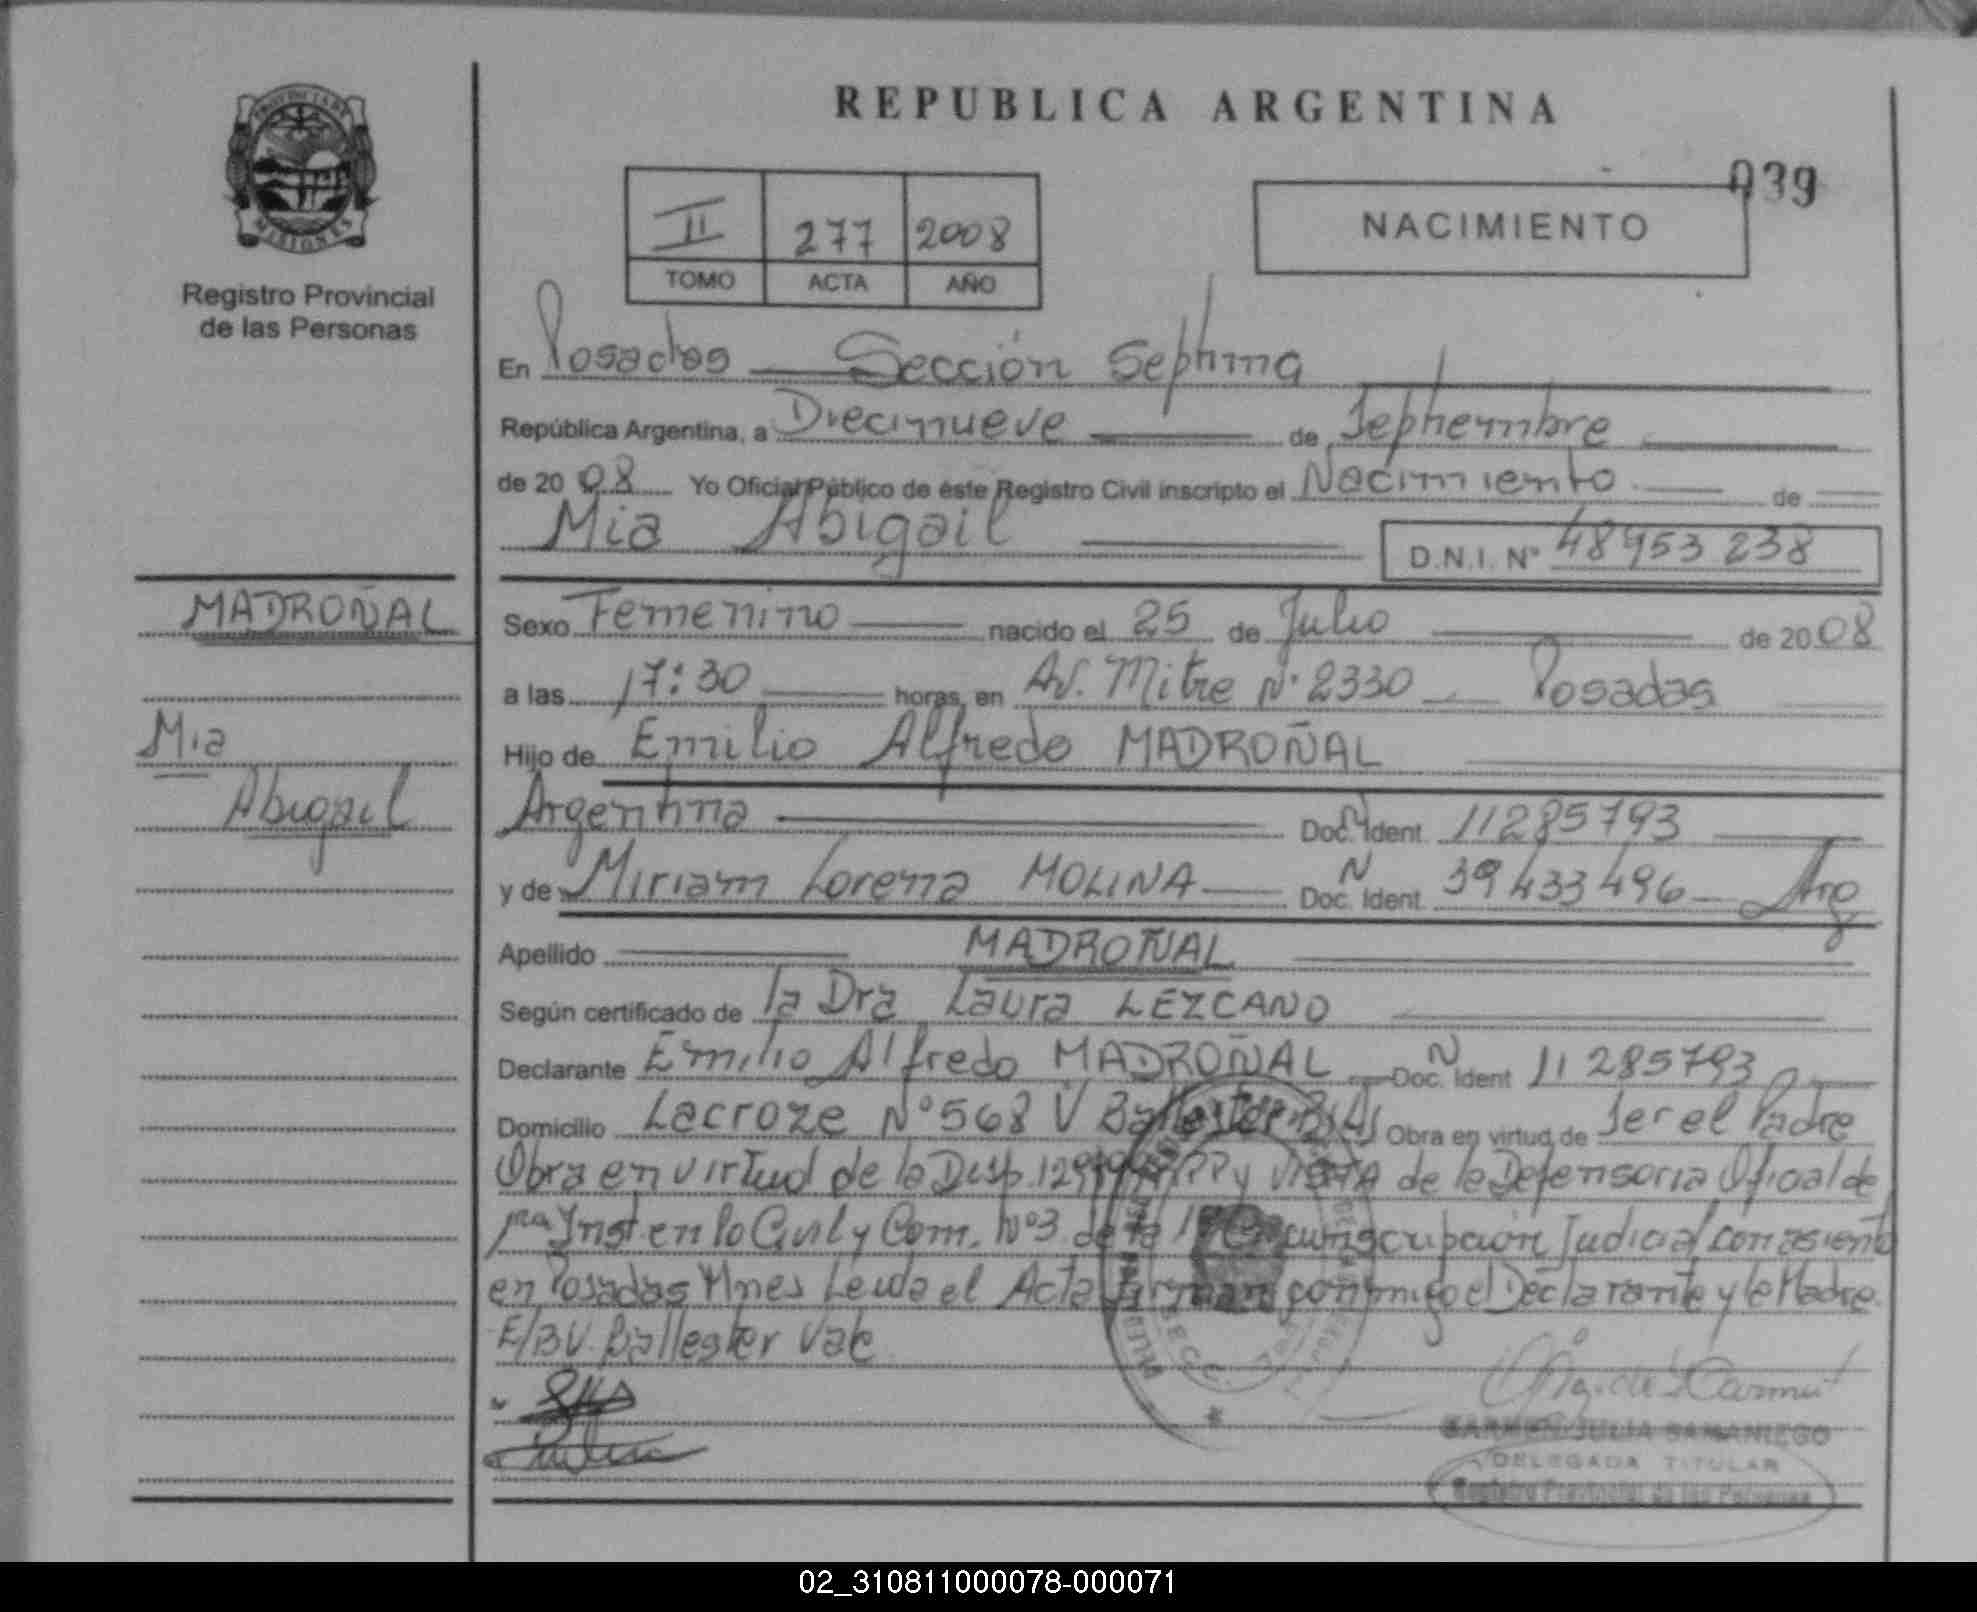 REPUBLICA ARGENTINA
039
PROVINCIA DE
MISIONES
Registro Provincial
de las Personas
II 277 2008
TOMO ACTA AÑO
NACIMIENTO
En Posadas Sección Septima
República Argentina, a Diecinueve de Septiembre
de 20 08 Yo Oficial Público de éste Registro Civil inscripto el Nacimiento de
Mia Abigail D.N.I. Nº 48953238
MADROÑAL
Mia
Abigail
Sexo Femenino nacido el 25 de Julio de 20 08
a las 17:30 horas, en Av. Mitre Nº 2330 Posadas
Hijo de Emilio Alfredo MADROÑAL
Argentina Doc. Ident. N 11285793
y de Miriam Lorena MOLINA Doc. Ident. N 39433496 Arg
Apellido MADROÑAL
Según certificado de la Dra Laura LEZCANO
Declarante Emilio Alfredo MADROÑAL Doc. Ident N 11285793
Domicilio Lacroze Nº 568 V Ballester Bs As Obra en virtud de Ser el Padre
Obra en virtud de la Disp. y VISTA de la Defensoria Oficial de
1ra Inst. en lo Civil y Com. Nº3 de la 1ra Circunscripción Judicial con asiento
en Posadas Mnes Leida el Acta firman conmigo el Declarante y la Madre
E/B V. Ballester Vale
CARMEN JULIA SAMANIEGO
DELEGADA TITULAR
Registro Provincial de las Personas
02_310811000078-000071